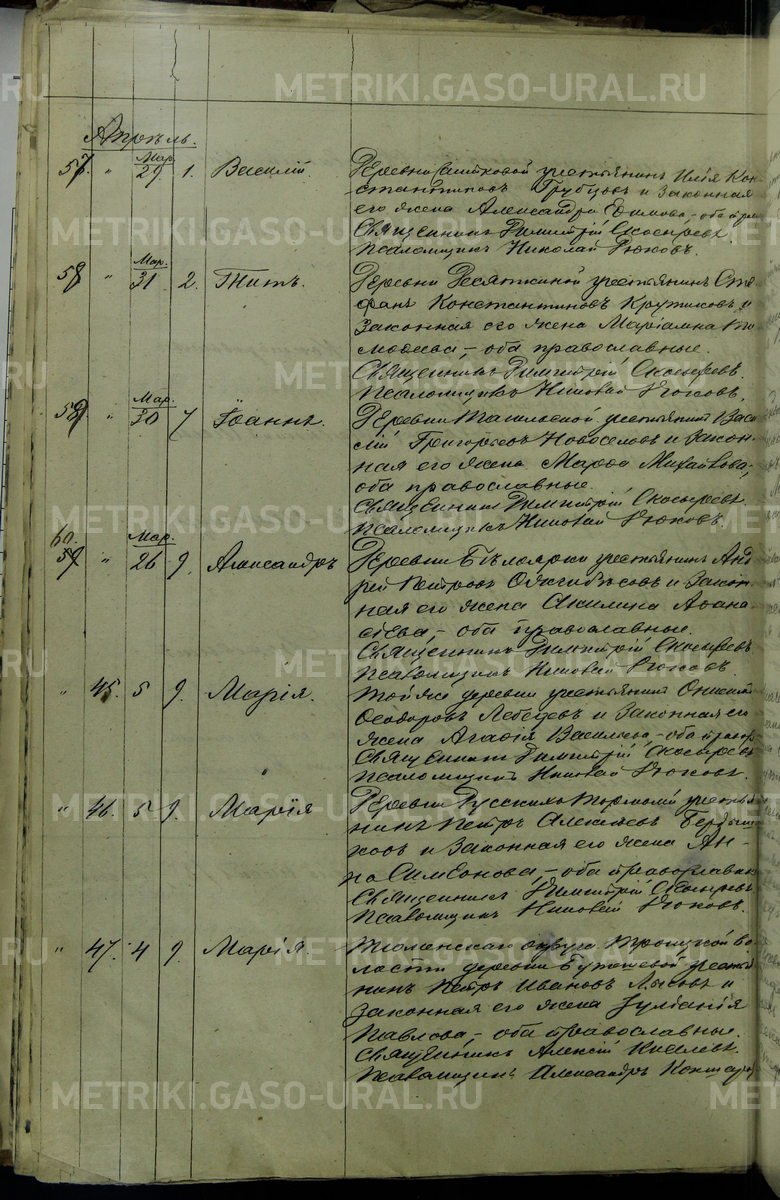 METRIKI.GASO-URAL.RU
Апрѣль.
57. " Мар. 29 1. Василій. Деревни крестьянинъ Илія Кон-
стантиновъ Трубинъ и законная
его жена Александра Ефимова, - оба прав
Священникъ Димитрій Скосыревъ
Псаломщикъ Николай Рюковъ.
58 " Мар. 31 2. Титъ. Деревни Десяткиной крестьянинъ Сте-
фанъ Константиновъ Крутиковъ и
законная его жена Маріамна Ти-
мофеева, - оба православные.
Священникъ Димитрій Скосыревъ
Псаломщикъ Николай Рюковъ.
59 " Мар. 30 7 Іоаннъ. Деревни крестьянинъ Васи-
лій Григорьевъ Новоселовъ и закон-
ная его жена Марѳа Михайлова,
оба православные.
Священникъ Димитрій Скосыревъ
Псаломщикъ Николай Рюковъ.
60. " Мар. 26 9. Александръ Деревни Бѣлоярки крестьянинъ Анд-
рей Петровъ и закон-
ная его жена Акилина Аѳана-
сіева, - оба православные.
Священникъ Димитрій Скосыревъ
Псаломщикъ Николай Рюковъ.
" 45. 5 9. Марія. Той же деревни крестьянинъ
Ѳеодоровъ Лебедевъ и законная его
жена Агафія Васильева - оба правос
Священникъ Димитрій Скосыревъ
Псаломщикъ Николай Рюковъ.
" 46. 5 9. Марія Деревни Русскихъ крестья-
нинъ Петръ Алексѣевъ
и законная его жена Ан-
на Симеонова, - оба православн
Священникъ Димитрій Скосыревъ
Псаломщикъ Николай Рюковъ.
" 47. 4 9. Марія. Тюменскаго округа Троицкой во-
лости деревни крестья-
нинъ Петръ Ивановъ и
законная его жена Іуліанія
Павлова, - оба православные.
Священникъ Алексій Киселевъ.
Псаломщикъ Александръ